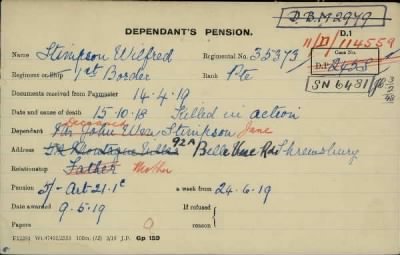 D.B.M 2979
DEPENDANT'S PENSION.
D.1
11/D/114559
Name Stimpson Wilfred Regimental No. 35373 Case No.
Regiment or Ship 1st Border Rank Pte D.P. 2458
SN 6481
Documents received from Paymaster 14-4-19
Date and cause of death 15.10.18 Killed in action
Deceased
Dependant Mr John Wm Stimpson Jane
Address 92A Belle Vue Rd Shrewsbury
Relationship Father Mother
Pension 5/- Art-21-1c a week from 24-6-19
Date awarded 9-5-19 If refused
Papers 0 reason
Gp 139